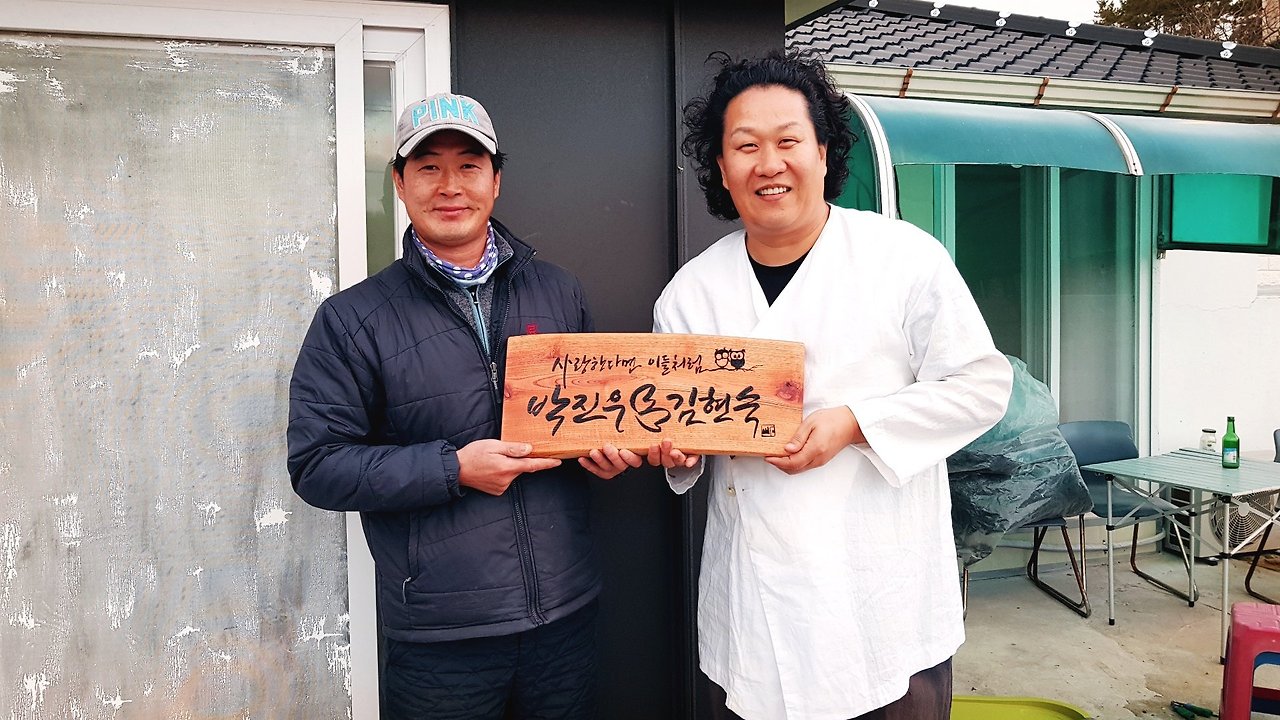 PINK
사랑한다면 이들처럼
박진우 김현숙